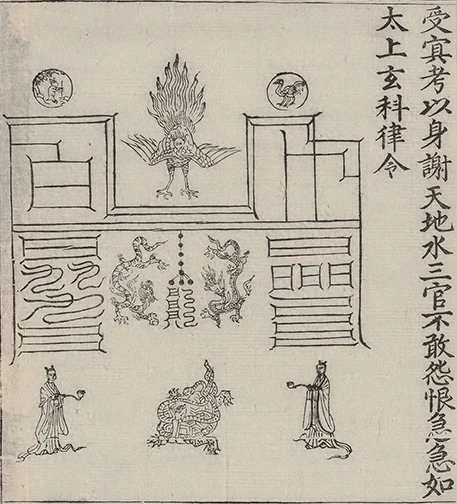 受寘考以身謝天地水三官不敢怨恨急急如
太上玄科律令